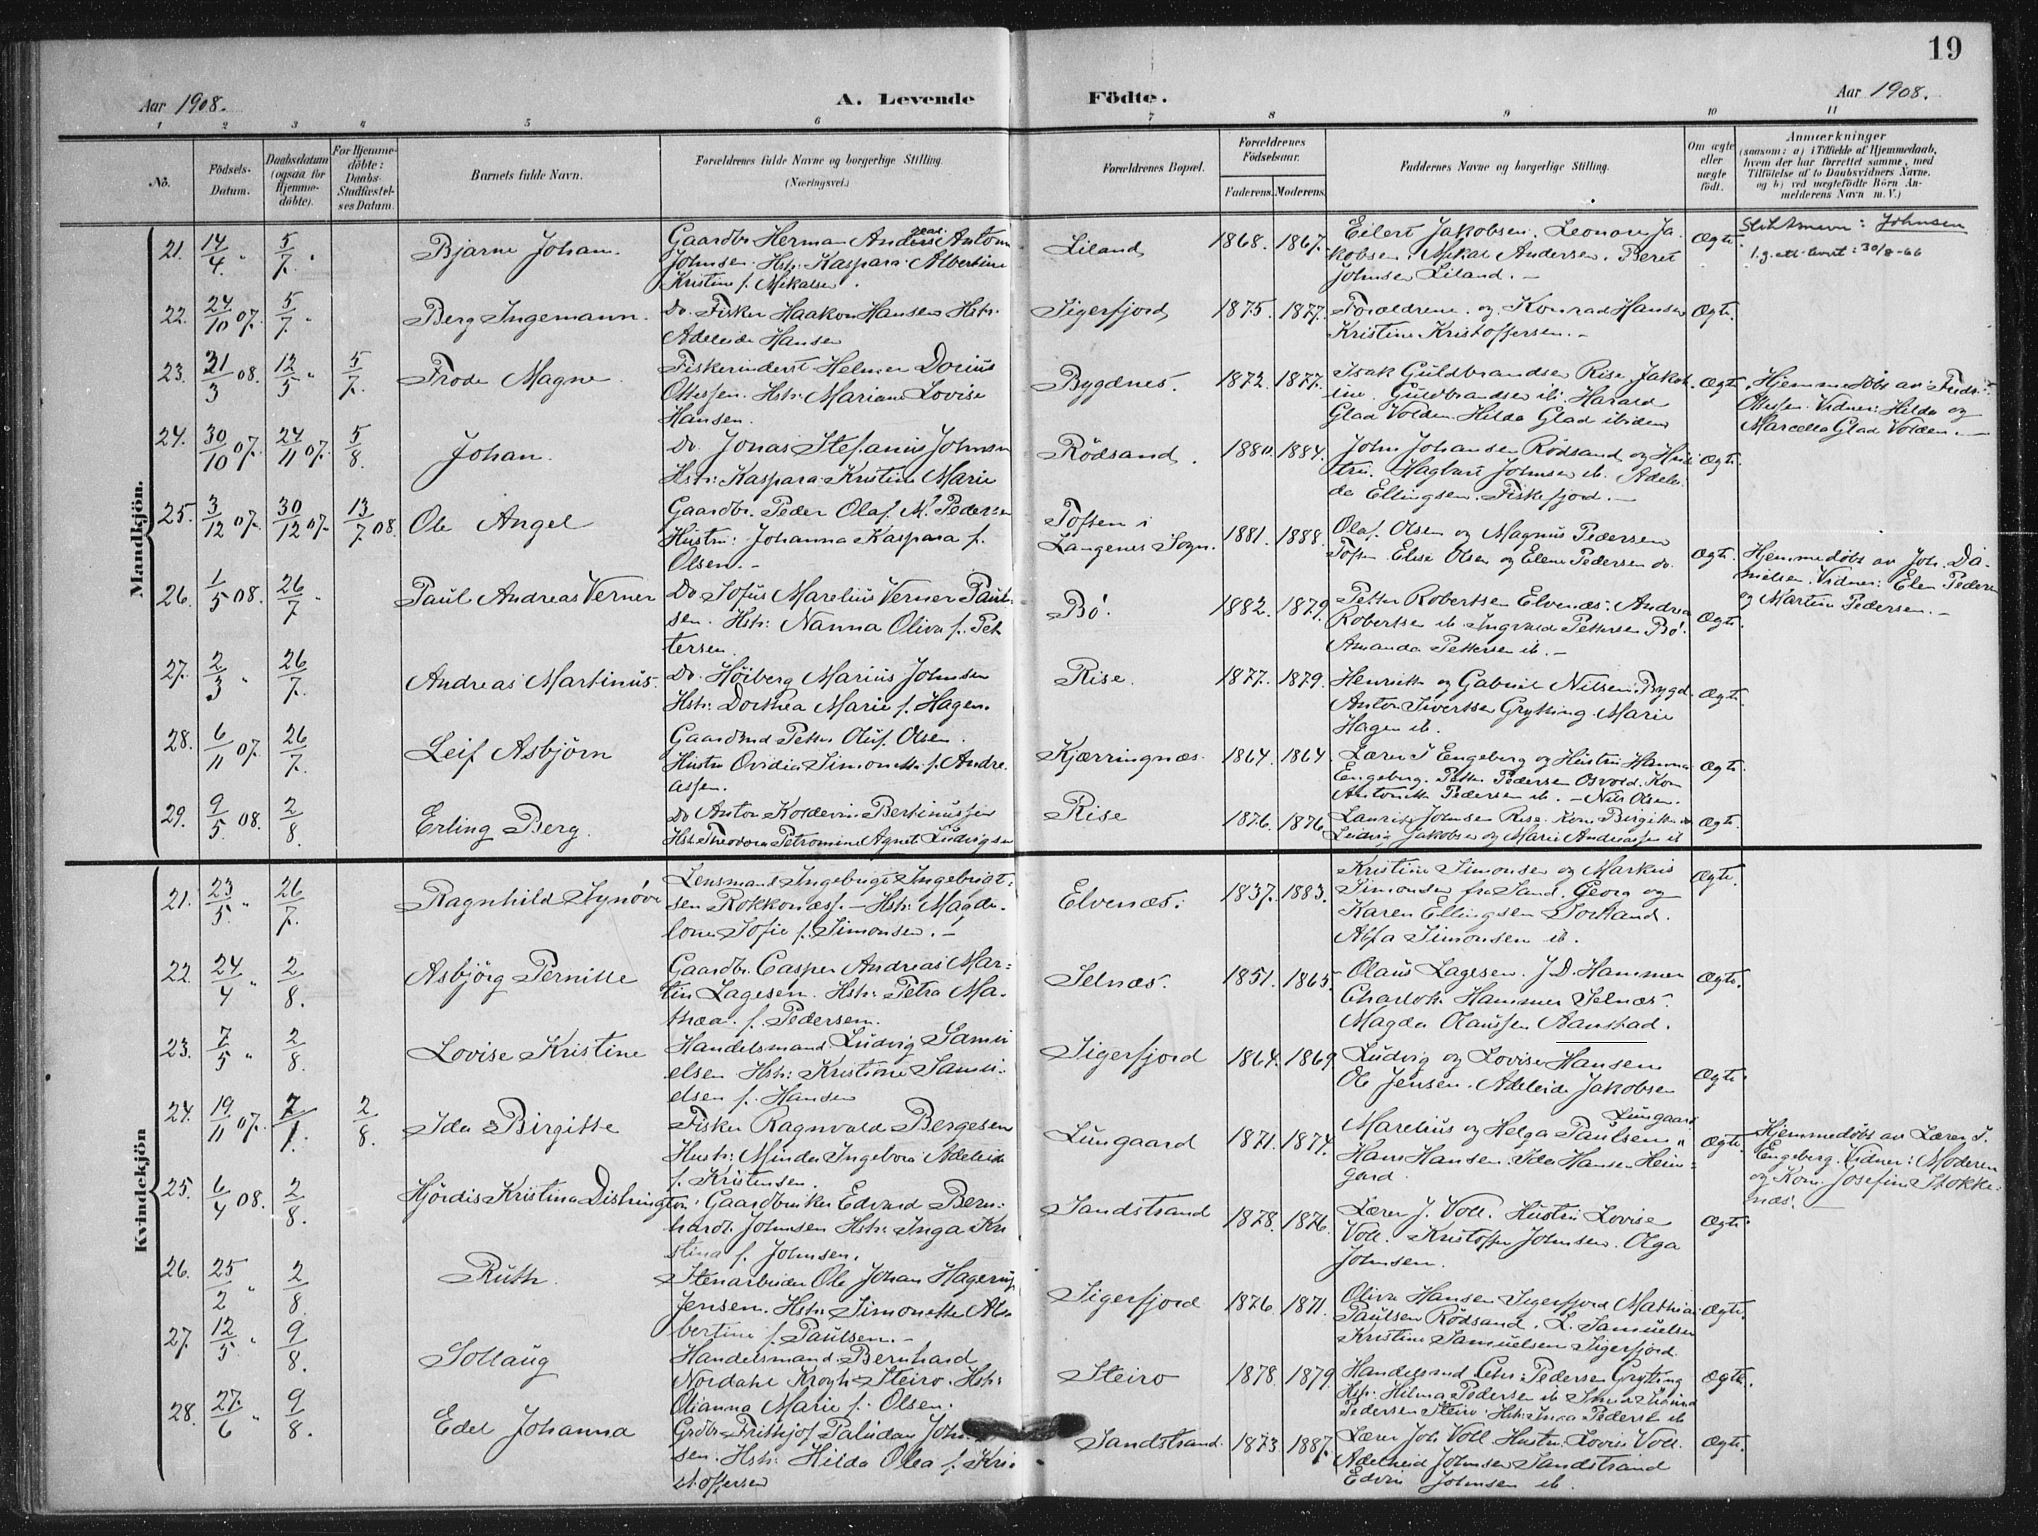 19
Aar 1908.
A. Levende
Födte.
Aar 1908.
1 2 3 4 5 6 7 8 9 10 11
No.
Födsels-
Datum.
Daabsdatum
(ogsaa for
Hjemme-
döbte).
For Hjemme-
döbte:
Daabs-
Stadfæstel-
ses Datum.
Barnets fulde Navn.
Forældrenes fulde Navne og borgerlige Stilling.
(Næringsvei.)
Forældrenes Bopæl.
Forældrenes
Födselsaar.
Faderens. Moderens.
Faddernes Navne og borgerlige Stilling.
Om ægte
eller
uægte
födt.
Anmærkninger
(saasom: a) i Tilfælde af Hjemmedaab,
hvem der har forrettet samme, med
Tilföielse af to Daabsvidners Navne,
og b) ved uægtefödte Börn An-
melderens Navn m. V.)
Mandkjön.
21. 14/4 " 5/7 "
Bjarne Johan.
Gaardbr. Herman Andreas Anton
Johnsen. Hstr. Kaspara Albertine
Kristine f. Mikalsen.
Liland
1868. 1867.
Eilert Jakobsen. Leonore Ja-
kobsen. Mikal Andersen. Beret
Johnsen Liland. —
Ægte
Slektsnavn: Johnsen
30/8-66
22. 24/10 07. 5/7 "
Berg Ingemann.
Do. Fisker Haakon Hansen Hstr:
Adeleide Hansen
Sigerfjord
1875. 1877.
Forældrene og Konrad Hansen
Kristine Kristoffersen. —
Ægte.
23. 31/3 08. 12/5 " 5/7.
Frode Magne.
Fiskerinderst Helmer Dorius
Ottesen. Hstr: Mariane Lovise
Hansen.
Bygdnes.
1872. 1877.
Isak Guldbrandsen Rise Jakob-
ine Guldbrandsen ib. Harald
Glad Volden. Hilda Glad ibidem
Ægte
Hjemmedøbt av: Fredr.
Ottesen. Vidner: Hilda og
Marcella Glad Volden. —
24. 30/10 07. 24/11 07. 5/8
Johan.
Do. Jonas Stefanius Johnsen
Hstr: Kaspara Kristine Marie
Rödsand.
1880. 1884.
John Johansen Rödsand og Hus-
tru. Hagbart Johnsen ib. Adelei-
de Ellingsen. Fiskefjord. —
Ægte.
25. 3/12 07. 30/12 07. 13/7 08.
Ole Angel
Gaardbr. Peder Olaf M. Pedersen
Hustru: Johanna Kaspara f.
Olsen. —
Toften i
Langenes Sogn.
1881. 1888.
Olaf Olsen og Magnus Pedersen
Toften Elise Olsen og Elene Pedersen do.
Ægte.
Hjemmedøbt av Joh. Da-
nielsen. Vidner: Elen Pedersen
og Martin Pedersen. —
26. 1/5 08. 26/7 "
Paul Andreas Verner
Do Sofus Marelius Verner Paul-
sen. Hstr: Nanna Oliva f. Pet-
tersen.
Bö.
1882. 1879.
Petter Robertsen Elvenæs. Andrea
Robertsen ib. Ingvald Pettersen Bö.
Amanda Pettersen ib. —
Ægte.
27. 2/3 " 26/7.
Andreas Martinus.
Do. Höiberg Marius Johnsen
Hstr: Dorthea Marie f. Hagen.
Rise.
1877. 1879.
Henrikke og Gabriel Nilsen. Bygd.
Anton Sivertsen Grytting. Marie
Hagen ib.
Ægte.
28. 6/11 07. 26/7.
Leif Asbjörn
Gaardmd Petter Oluf Olsen.
Hustru Ovidia Simonette f. Andre-
assen.
Kjærringnæs.
1864. 1864.
Lærer I Engeberg og Hustru Hanna
Engeberg. Petter Pedersen Osvold. Kon
Antonette Pedersen ib. — Nils Olsen.
Ægte.
29. 9/5 08. 2/8.
Erling Berg.
Do Anton Koldevin Bertinussen
Hstr. Theodora Petromine Agnete Ludvigsen
Rise
1876. 1876
Laurits Johnsen Rise. Kone Birgitte do
Ludvig Jakobsen og Marie Andreassen ib
Ægte.
Kvindekjön
21. 23/5 " 26/7.
Ragnhild Synöve
Lensmand Ingebrigt Ingebrigt-
sen Rokkonæs. — Hstr: Magda-
lone Sofie f. Simonsen. —
Elvenæs.
1837. 1883.
Kristine Simonsen og Markus
Simonsen fra Sand. Georg og
Karen Ellingsen Sortland.
Alfa Simonsen ib.
Ægte.
22. 24/4 " 2/8.
Asbjörg Pernille
Gaardbr. Casper Andreas Mar-
tin Lagesen. Hstr: Petra Ma-
thea f. Pedersen.
Selnæs.
1851. 1865.
Olaus Lagesen. J. D. Hammer
Charlotte Hammer Selnæs.
Magda Olaussen Aanstad.
Ægte.
23. 7/5 " 2/8.
Lovise Kristine
Handelsmand Ludvig Samu-
elsen Hstr: Kristine Samu-
elsen f. Hansen
Sigerfjord
1864. 1869
Ludvig og Lovise Hansen
Ole Jensen. Adeleide Jakobsen
Ægte.
24. 19/11 07. 7/1. 2/8.
Ida Birgitte
Fisker Ragnvald Bergesen
Hustr: Minda Ingebora Adeleide
f. Kristensen.
Lungaard
1871. 1874.
Marelius og Helga Paulsen Lungaard
Hans Hansen. Ida Hansen Heim-
gard.
Ægte.
Hjemmedøbt av Lærer I.
Engeberg. Vidner: Moderen
og Kone Josefine Stokke-
næs.
25. 6/4 08. 2/8.
Hjördis Kristina Dishington
Gaardbruker Edvard Bern-
hardt Johnsen Hstr: Inga Kri-
stina f. Johnsen.
Sandstrand
1878. 1876.
Lærer J. Voll. Hustru Lovise
Voll. Kristoffer Johnsen. Olga
Johnsen.
Ægte.
26. 25/2 " 2/8.
Ruth.
Stenarbeider Ole Johan Hagerup
Jensen. Hstr: Simonette Al-
bertine f. Paulsen. —
Sigerfjord
1876. 1871.
Oliva Hansen Sigerfjord Mathias
Paulsen Rödsand. L. Samuelsen
Kristine Samuelsen Sigerfjord.
Ægte.
27. 12/5 " 9/8.
Sollaug
Handelsmand Bernhard
Nordahl Krogh Steiro. Hstr:
Olianna Marie f. Olsen.
Steiro
1878. 1879.
Handelsmd Chr. Pedersen Grytting
Hstr. Hilma Pedersen ib
Pedersen Steiro. Hstr: Inga Pedersen ib
Ægte.
28. 27/6 " 9/8.
Edel Johanna
Grdbr. Frithjof Paludan John-
sen. Hstr: Hilda Olea f. Kri-
stoffersen
Sandstrand.
1873. 1887.
Lærer Joh Voll. Hustru Lovise Voll.
Adelheid Johnsen Sandstrand
Edvin Johnsen ib.
Ægte.